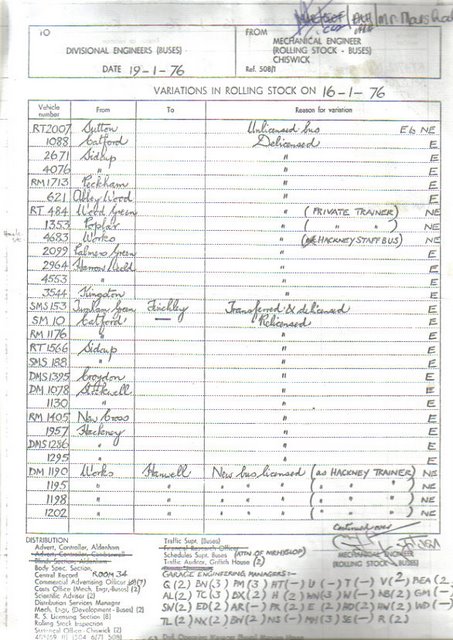 TO
FROM
DIVISIONAL ENGINEERS (BUSES)
MECHANICAL ENGINEER
(ROLLING STOCK - BUSES)
CHISWICK
DATE 19-1-76
Ref. 508/1
VARIATIONS IN ROLLING STOCK ON 16-1-76
Vehicle number From To Reason for variation
RT2007 Sutton Unlicensed bus E6 NE
1088 Catford Delicensed E
2671 Sidcup " E
4076 " " E
RM1713 Peckham " E
621 Abbey Wood " E
RT 484 Wood Green " (PRIVATE TRAINER) NE
1353 Poplar " ( " " ) NE
4683 Works " (HACKNEY STAFF BUS) NE
2099 Palmers Green " E
2964 Harrow Weald " E
4553 " " E
3544 Kingston " E
SMS153 Turnham Green Finchley Transferred & delicensed E
SM 10 Catford — Relicensed E
RM1176 " " E
RT1566 Sidcup " E
SMS 188 " " E
DMS1395 Croydon " E
DM 1078 Stockwell " E
1130 " " E
RM 1405 New Cross " E
1957 Hackney " E
DMS1286 " " E
1295 " " E
DM 1190 Works Hanwell New bus licensed (as HACKNEY TRAINER) NE
1195 " " " " " ( " " " ) NE
1198 " " " " " ( " " " ) NE
1202 " " " " " ( " " " ) NE
Continued over
DISTRIBUTION
Advert. Controller, Aldenham
Advert. Controller, Camberwell
Body Spec. Section.
Central Record ROOM 34
Commercial Advertising Officer
Costs Office (Mech. Engr.-Buses) (2)
Scientific Advisor (2)
Distribution Services Manager
(Mech. Engr. Development - Buses) (2)
R. S. Licensing Section (8)
Rolling Stock Inspection
Statistical Officer - Chiswick (2)
Traffic Supt. (Buses)
Financial Research Officer
Schedules Supt. Buses
Traffic Auditor, Griffith House (2)
MECHANICAL ENGINEER
(ROLLING STOCK - BUSES)
GARAGE ENGINEERING MANAGERS:-